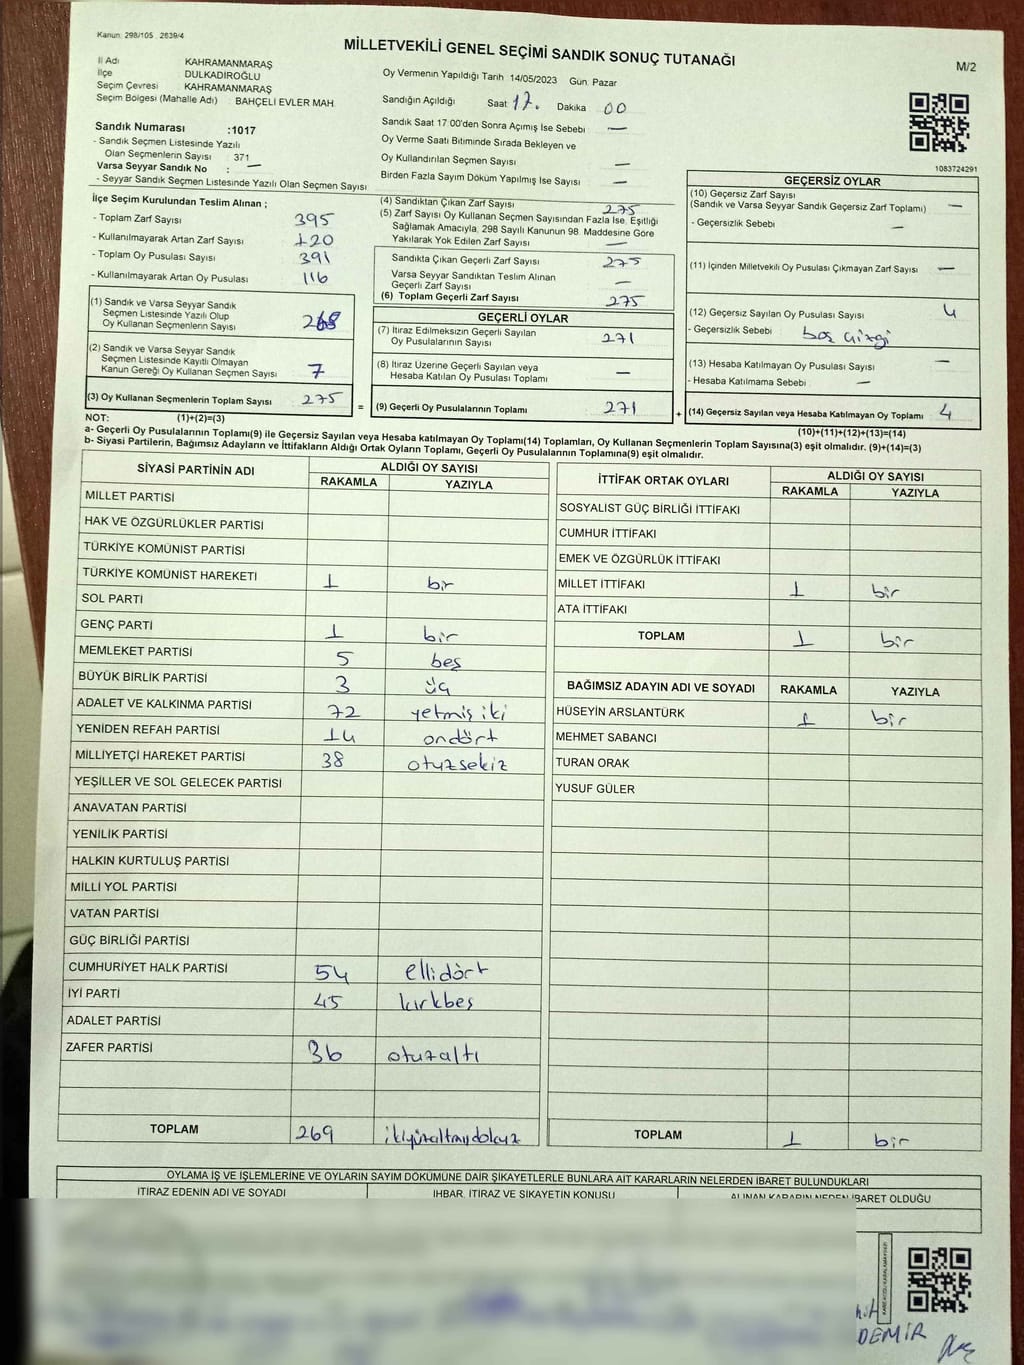 Kanun: 298/105 . 2839/4
MİLLETVEKİLİ GENEL SEÇİMİ SANDIK SONUÇ TUTANAĞI
M/2
İl Adı KAHRAMANMARAŞ
İlçe DULKADİROĞLU
Seçim Çevresi KAHRAMANMARAŞ
Seçim Bölgesi (Mahalle Adı) : BAHÇELİ EVLER MAH.
Oy Vermenin Yapıldığı Tarih 14/05/2023 Gün: Pazar
Sandığın Açıldığı Saat 17. Dakika 00
Sandık Saat 17:00'den Sonra Açımış İse Sebebi —
Oy Verme Saati Bitiminde Sırada Bekleyen ve
Oy Kullandırılan Seçmen Sayısı —
Birden Fazla Sayım Döküm Yapılmış İse Sayısı —
Sandık Numarası :1017
- Sandık Seçmen Listesinde Yazılı
Olan Seçmenlerin Sayısı : 371
Varsa Seyyar Sandık No : —
- Seyyar Sandık Seçmen Listesinde Yazılı Olan Seçmen Sayısı
1083724291
İlçe Seçim Kurulundan Teslim Alınan ;
- Toplam Zarf Sayısı 395
- Kullanılmayarak Artan Zarf Sayısı 120
- Toplam Oy Pusulası Sayısı 391
- Kullanılmayarak Artan Oy Pusulası 116
(1) Sandık ve Varsa Seyyar Sandık
Seçmen Listesinde Yazılı Olup
Oy Kullanan Seçmenlerin Sayısı 268
(2) Sandık ve Varsa Seyyar Sandık
Seçmen Listesinde Kayıtlı Olmayan
Kanun Gereği Oy Kullanan Seçmen Sayısı 7
(3) Oy Kullanan Seçmenlerin Toplam Sayısı 275
(4) Sandıktan Çıkan Zarf Sayısı 275
(5) Zarf Sayısı Oy Kullanan Seçmen Sayısından Fazla İse, Eşitliği
Sağlamak Amacıyla, 298 Sayılı Kanunun 98. Maddesine Göre
Yakılarak Yok Edilen Zarf Sayısı —
Sandıkta Çıkan Geçerli Zarf Sayısı 275
Varsa Seyyar Sandıktan Teslim Alınan
Geçerli Zarf Sayısı —
(6) Toplam Geçerli Zarf Sayısı 275
GEÇERLİ OYLAR
(7) İtiraz Edilmeksizin Geçerli Sayılan
Oy Pusulalarının Sayısı 271
(8) İtiraz Üzerine Geçerli Sayılan veya
Hesaba Katılan Oy Pusulası Toplamı —
= (9) Geçerli Oy Pusulalarının Toplamı 271
GEÇERSİZ OYLAR
(10) Geçersiz Zarf Sayısı
(Sandık ve Varsa Seyyar Sandık Geçersiz Zarf Toplamı) —
- Geçersizlik Sebebi —
(11) İçinden Milletvekili Oy Pusulası Çıkmayan Zarf Sayısı —
(12) Geçersiz Sayılan Oy Pusulası Sayısı 4
- Geçersizlik Sebebi : boş çizgi
(13) Hesaba Katılmayan Oy Pusulası Sayısı —
- Hesaba Katılmama Sebebi —
+ (14) Geçersiz Sayılan veya Hesaba Katılmayan Oy Toplamı 4
NOT: (1)+(2)=(3)
(10)+(11)+(12)+(13)=(14)
a- Geçerli Oy Pusulalarının Toplamı(9) ile Geçersiz Sayılan veya Hesaba katılmayan Oy Toplamı(14) Toplamları, Oy Kullanan Seçmenlerin Toplam Sayısına(3) eşit olmalıdır. (9)+(14)=(3)
b- Siyasi Partilerin, Bağımsız Adayların ve İttifakların Aldığı Ortak Oyların Toplamı, Geçerli Oy Pusulalarının Toplamına(9) eşit olmalıdır.
SİYASİ PARTİNİN ADI ALDIĞI OY SAYISI
RAKAMLA YAZIYLA
MİLLET PARTİSİ
HAK VE ÖZGÜRLÜKLER PARTİSİ
TÜRKİYE KOMÜNİST PARTİSİ
TÜRKİYE KOMÜNİST HAREKETİ 1 bir
SOL PARTİ
GENÇ PARTİ 1 bir
MEMLEKET PARTİSİ 5 beş
BÜYÜK BİRLİK PARTİSİ 3 üç
ADALET VE KALKINMA PARTİSİ 72 yetmiş iki
YENİDEN REFAH PARTİSİ 14 ondört
MİLLİYETÇİ HAREKET PARTİSİ 38 otuzsekiz
YEŞİLLER VE SOL GELECEK PARTİSİ
ANAVATAN PARTİSİ
YENİLİK PARTİSİ
HALKIN KURTULUŞ PARTİSİ
MİLLİ YOL PARTİSİ
VATAN PARTİSİ
GÜÇ BİRLİĞİ PARTİSİ
CUMHURİYET HALK PARTİSİ 54 ellidört
İYİ PARTİ 45 kırkbeş
ADALET PARTİSİ
ZAFER PARTİSİ 36 otuzaltı
TOPLAM 269 ikiyüzaltmışdokuz
İTTİFAK ORTAK OYLARI ALDIĞI OY SAYISI
RAKAMLA YAZIYLA
SOSYALİST GÜÇ BİRLİĞİ İTTİFAKI
CUMHUR İTTİFAKI
EMEK VE ÖZGÜRLÜK İTTİFAKI
MİLLET İTTİFAKI 1 bir
ATA İTTİFAKI
TOPLAM 1 bir
BAĞIMSIZ ADAYIN ADI VE SOYADI RAKAMLA YAZIYLA
HÜSEYİN ARSLANTÜRK 1 bir
MEHMET SABANCI
TURAN ORAK
YUSUF GÜLER
TOPLAM 1 bir
OYLAMA İŞ VE İŞLEMLERİNE VE OYLARIN SAYIM DÖKÜMÜNE DAİR ŞİKAYETLERLE BUNLARA AİT KARARLARIN NELERDEN İBARET BULUNDUKLARI
İTİRAZ EDENİN ADI VE SOYADI İHBAR, İTİRAZ VE ŞİKAYETİN KONUSU ALINAN KARARIN NEDEN İBARET OLDUĞU
DEMİR